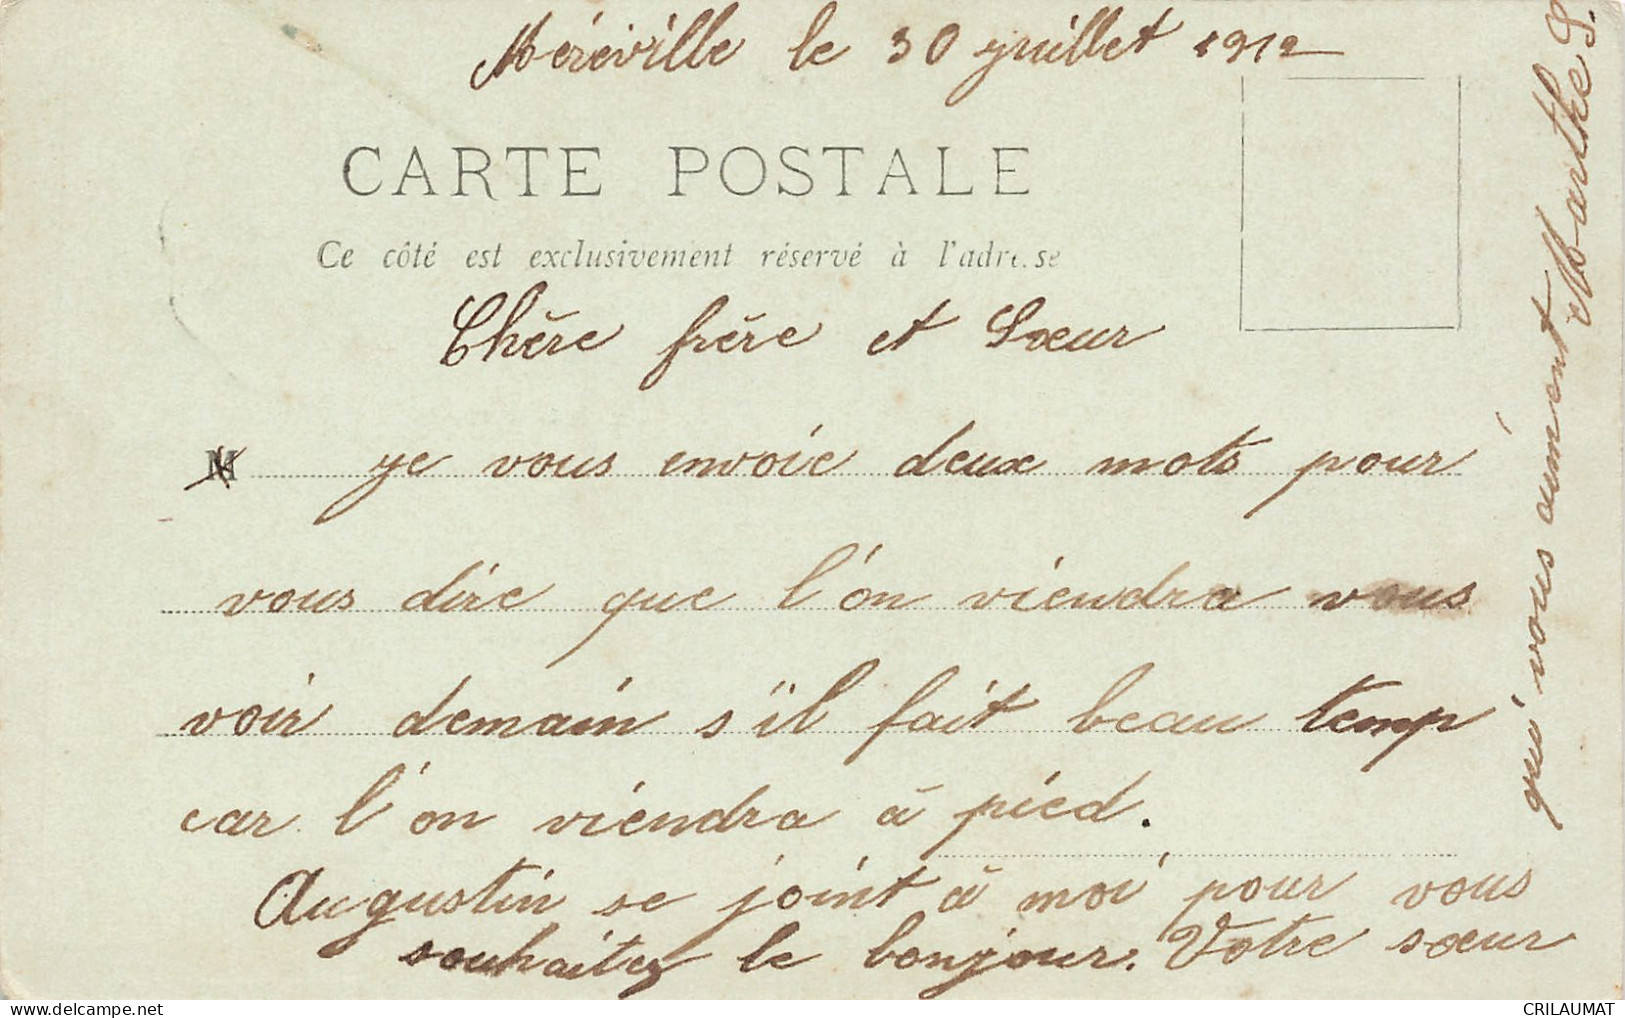 Méréville le 30 juillet 1912
CARTE POSTALE
Ce côté est exclusivement réservé à l'adresse
Chère frère et Sœur
M
je vous envoie deux mots pour
vous dire que l'on viendra vous
voir demain s'il fait beau temp
car l'on viendra à pied.
Augustin se joint à moi pour vous
souhaitez le bonjour. Votre sœur
qui vous aiment
Marthe S.
CRILAUMAT